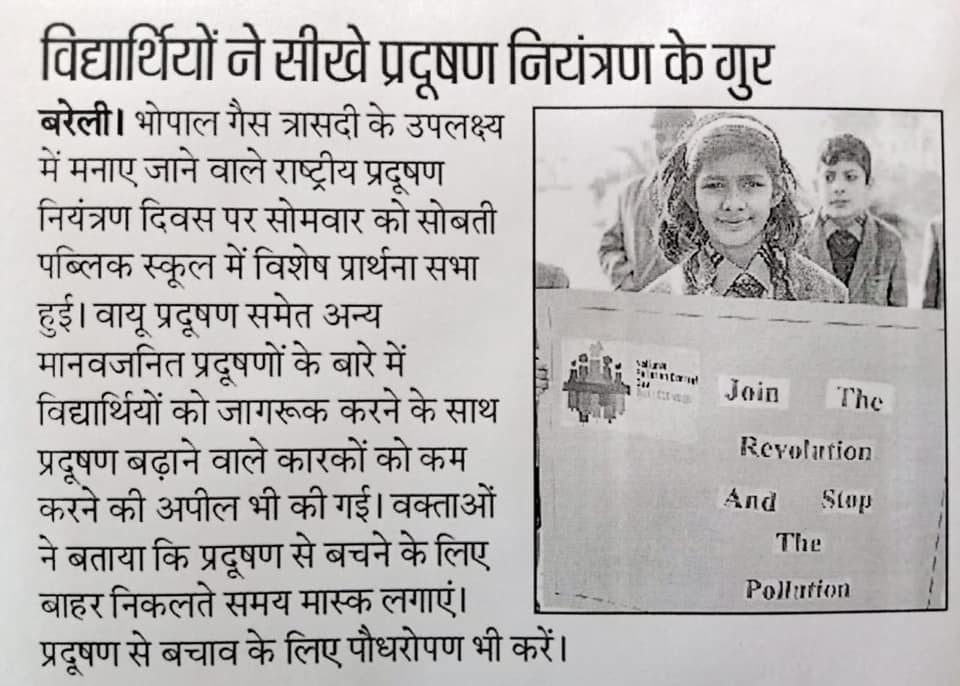 विद्यार्थियों ने सीखे प्रदूषण नियंत्रण के गुर
बरेली। भोपाल गैस त्रासदी के उपलक्ष्य
में मनाए जाने वाले राष्ट्रीय प्रदूषण
नियंत्रण दिवस पर सोमवार को सोबती
पब्लिक स्कूल में विशेष प्रार्थना सभा
हुई। वायू प्रदूषण समेत अन्य
मानवजनित प्रदूषणों के बारे में
विद्यार्थियों को जागरूक करने के साथ
प्रदूषण बढ़ाने वाले कारकों को कम
करने की अपील भी की गई। वक्ताओं
ने बताया कि प्रदूषण से बचने के लिए
बाहर निकलते समय मास्क लगाएं।
प्रदूषण से बचाव के लिए पौधरोपण भी करें।
National
Pollution Control
Day
Join The
Revolution
And Stop
The
Pollution